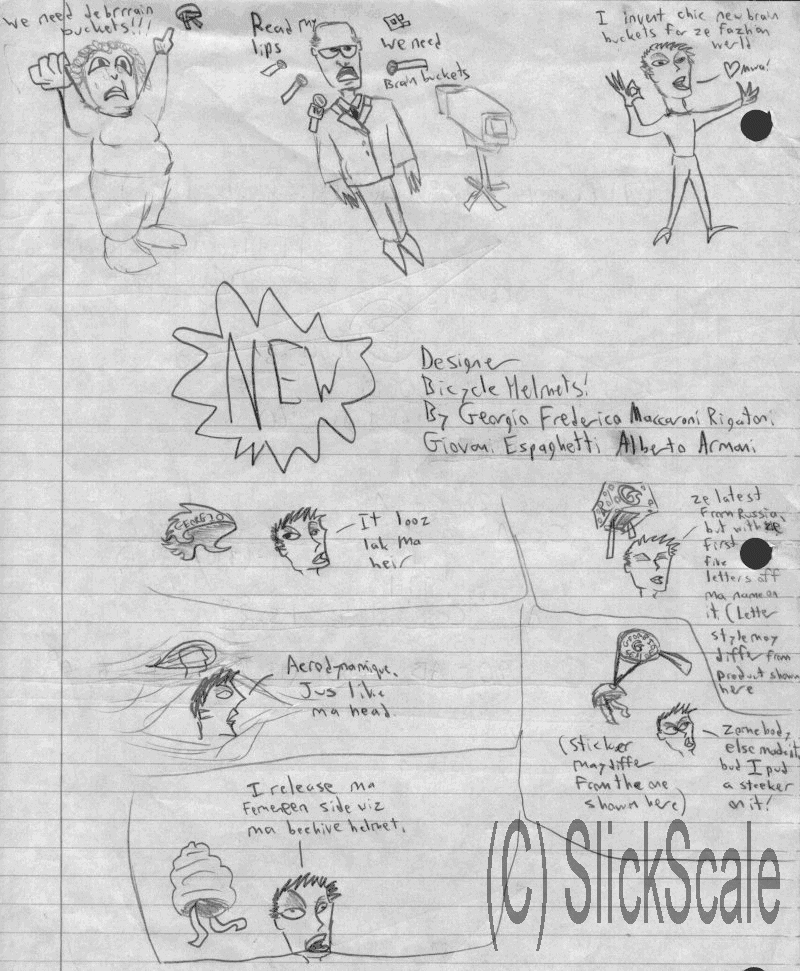 We need de brrrain
buckets!!!
Read my
lips
We need
Brain buckets
I invent chic new brain
buckets for ze fazhon
world
mwa!
NEW
Designer
Bicycle Helmets!
By Georgio Frederico Maccaroni Rigatoni
Giovani Espaghetti Alberto Armani
GEORGIO
It looz
lak ma
heir
ze latest
From Russia,
but with ze
first
five
letters off
ma name on
it. (Letter
style may
differ from
product shown
here
Aerodynamique.
Jus like
ma head.
GEORGIO
G
(Sticker
may differ
from the one
shown here)
Zomebody
else made it
but I pud
a steeker
on it!
I release ma
Femereen side viz
ma beehive helmet.
(C) SlickScale